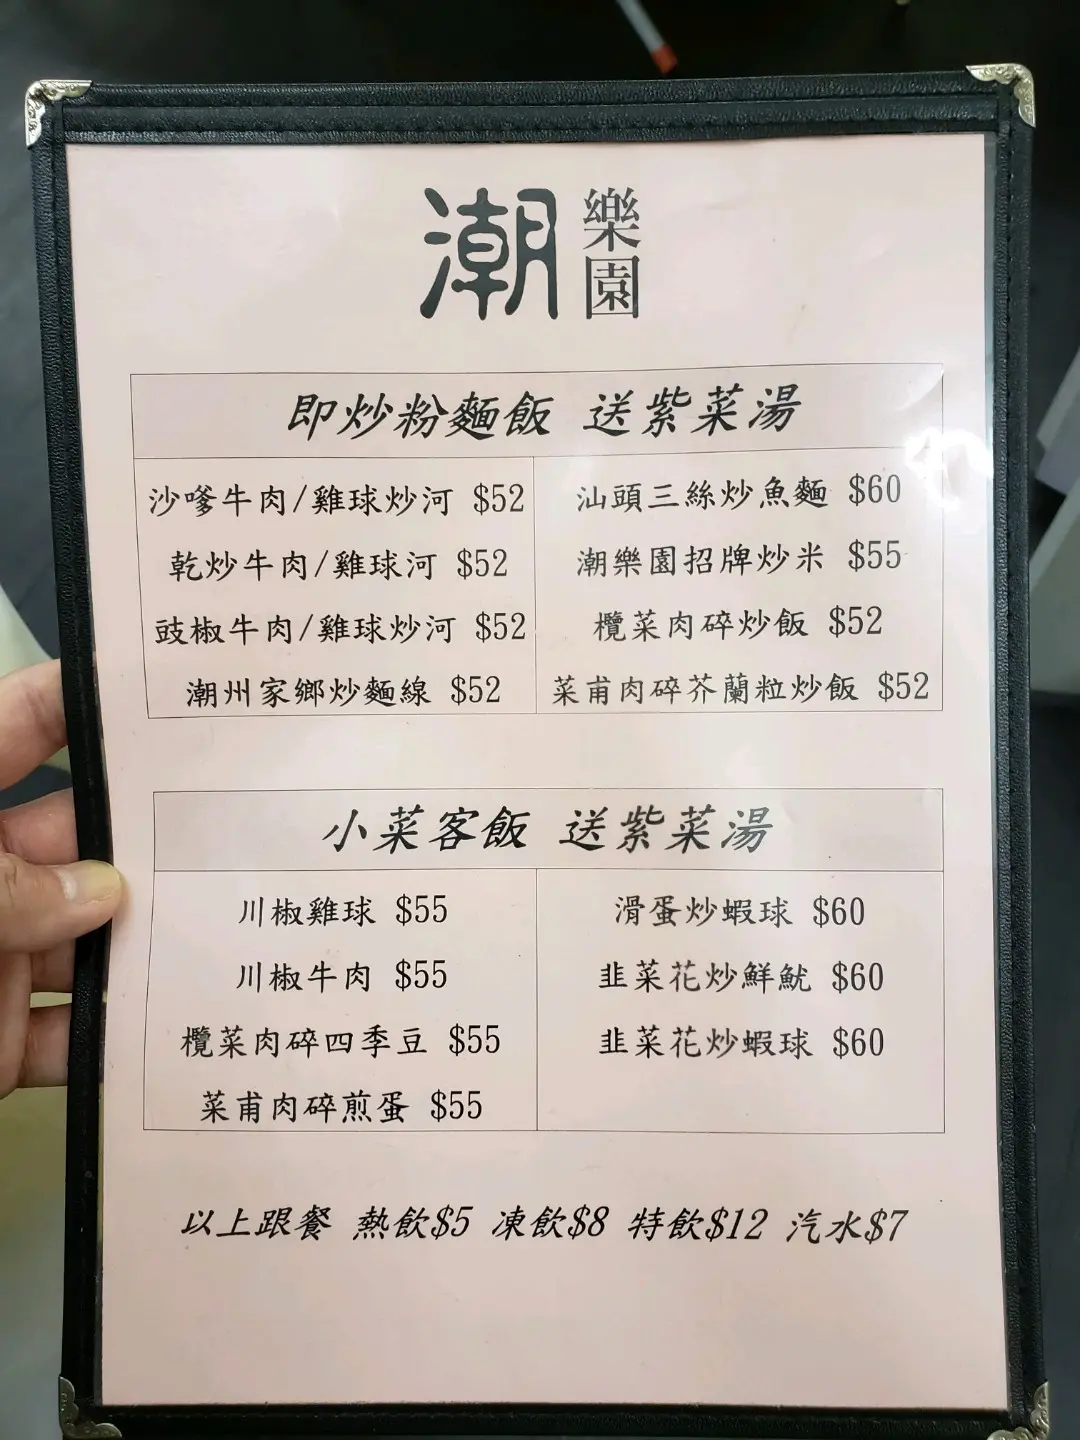 潮樂園
即炒粉麵飯 送紫菜湯
沙嗲牛肉/雞球炒河 $52
乾炒牛肉/雞球河 $52
豉椒牛肉/雞球炒河 $52
潮州家鄉炒麵線 $52
汕頭三絲炒魚麵 $60
潮樂園招牌炒米 $55
欖菜肉碎炒飯 $52
菜甫肉碎芥蘭粒炒飯 $52
小菜客飯 送紫菜湯
川椒雞球 $55
川椒牛肉 $55
欖菜肉碎四季豆 $55
菜甫肉碎煎蛋 $55
滑蛋炒蝦球 $60
韭菜花炒鮮魷 $60
韭菜花炒蝦球 $60
以上跟餐 熱飲$5 凍飲$8 特飲$12 汽水$7